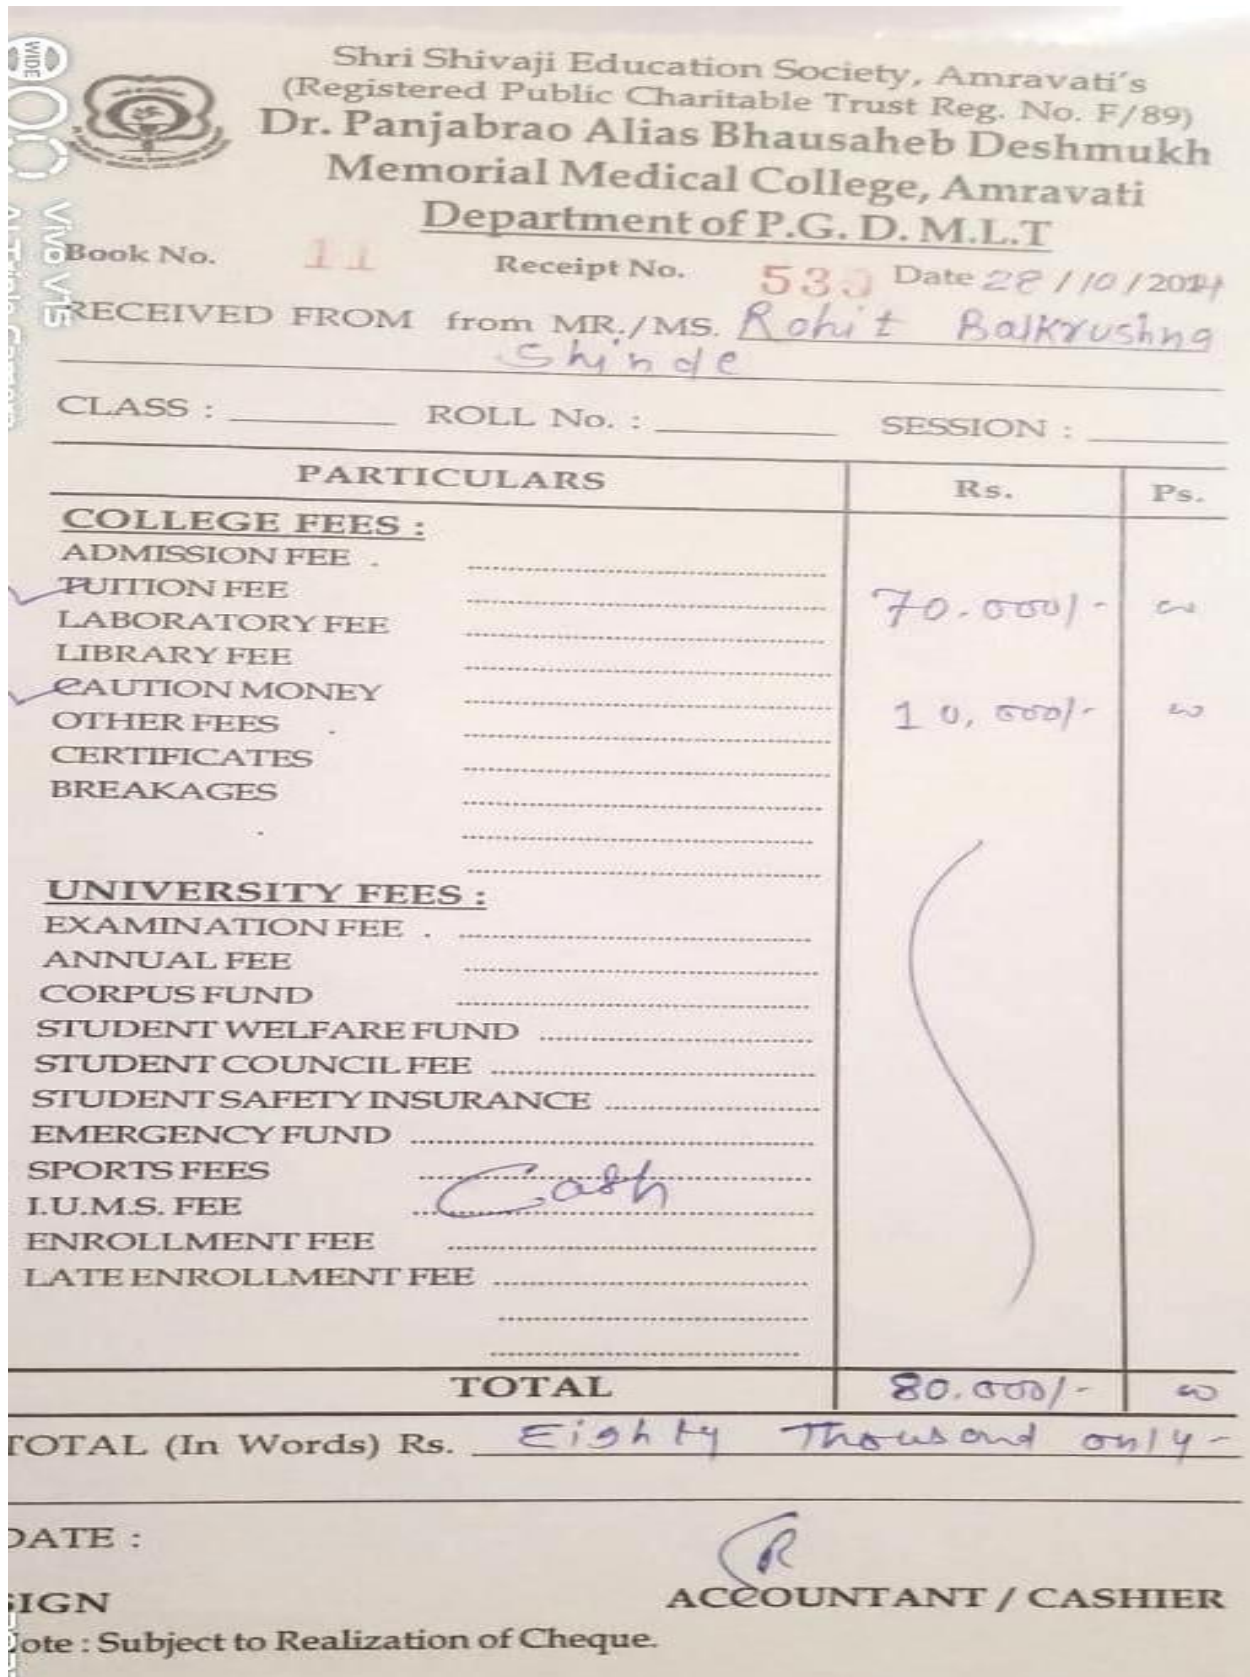 Shri Shivaji Education Society, Amravati's
(Registered Public Charitable Trust Reg. No. F/89)
Dr. Panjabrao Alias Bhausaheb Deshmukh
Memorial Medical College, Amravati
Department of P.G. D. M.L.T
Book No. 11 Receipt No. 53 Date 28/10/20
RECEIVED FROM from MR./MS. Rohit Balkrushna
Shinde
CLASS : ROLL No. : SESSION :
PARTICULARS Rs. Ps.
COLLEGE FEES :
ADMISSION FEE
TUITION FEE 70.000/- 00
LABORATORY FEE
LIBRARY FEE
CAUTION MONEY 10,000/- 00
OTHER FEES
CERTIFICATES
BREAKAGES
UNIVERSITY FEES :
EXAMINATION FEE
ANNUAL FEE
CORPUS FUND
STUDENT WELFARE FUND
STUDENT COUNCIL FEE
STUDENT SAFETY INSURANCE
EMERGENCY FUND
SPORTS FEES
I.U.M.S. FEE Cash
ENROLLMENT FEE
LATE ENROLLMENT FEE
TOTAL 80.000/- 00
TOTAL (In Words) Rs. Eighty Thousand only-
DATE :
SIGN ACCOUNTANT / CASHIER
Note : Subject to Realization of Cheque.
WIDE
Vivo V15